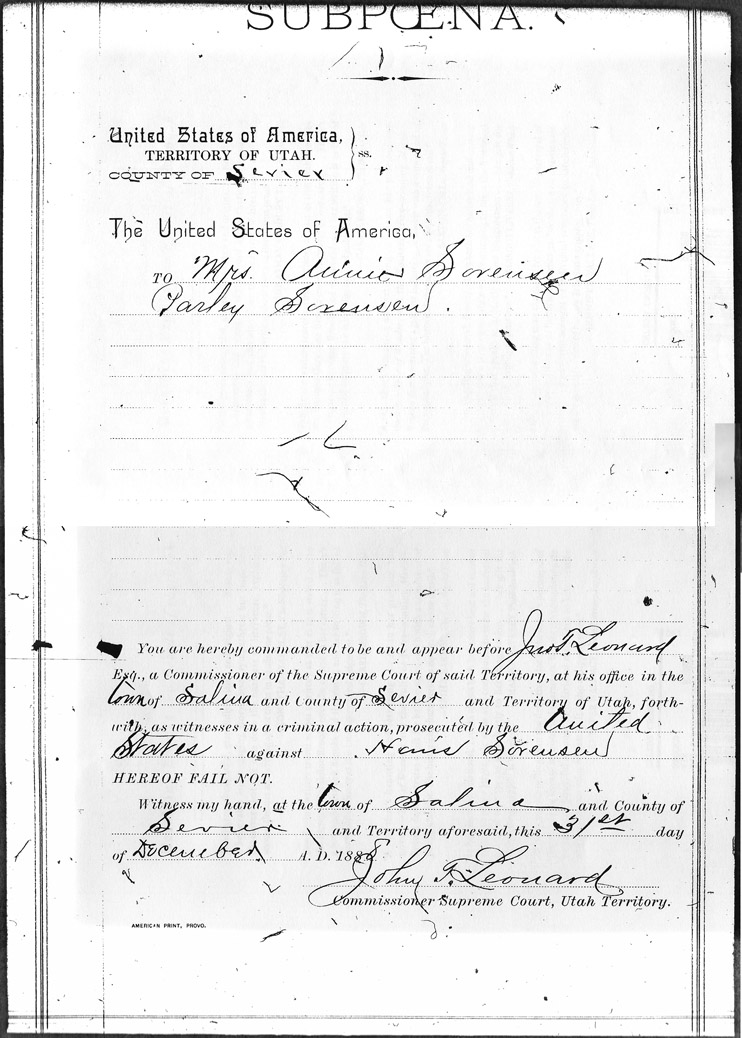 SUBPŒNA.
United States of America,
TERRITORY OF UTAH. ss.
COUNTY OF Sevier
The United States of America,
TO Mrs. Annie Sorensen
Parley Sorensen.
You are hereby commanded to be and appear before Jno T. Leonard
Esq., a Commissioner of the Supreme Court of said Territory, at his office in the
town of Salina and County of Sevier and Territory of Utah, forth-
with, as witnesses in a criminal action, prosecuted by the United
States against Hans Sorensen
HEREOF FAIL NOT.
Witness my hand, at the town of Salina and County of
Sevier and Territory aforesaid, this 31st day
of December A. D. 1888
John T. Leonard
Commissioner Supreme Court, Utah Territory.
AMERICAN PRINT, PROVO.